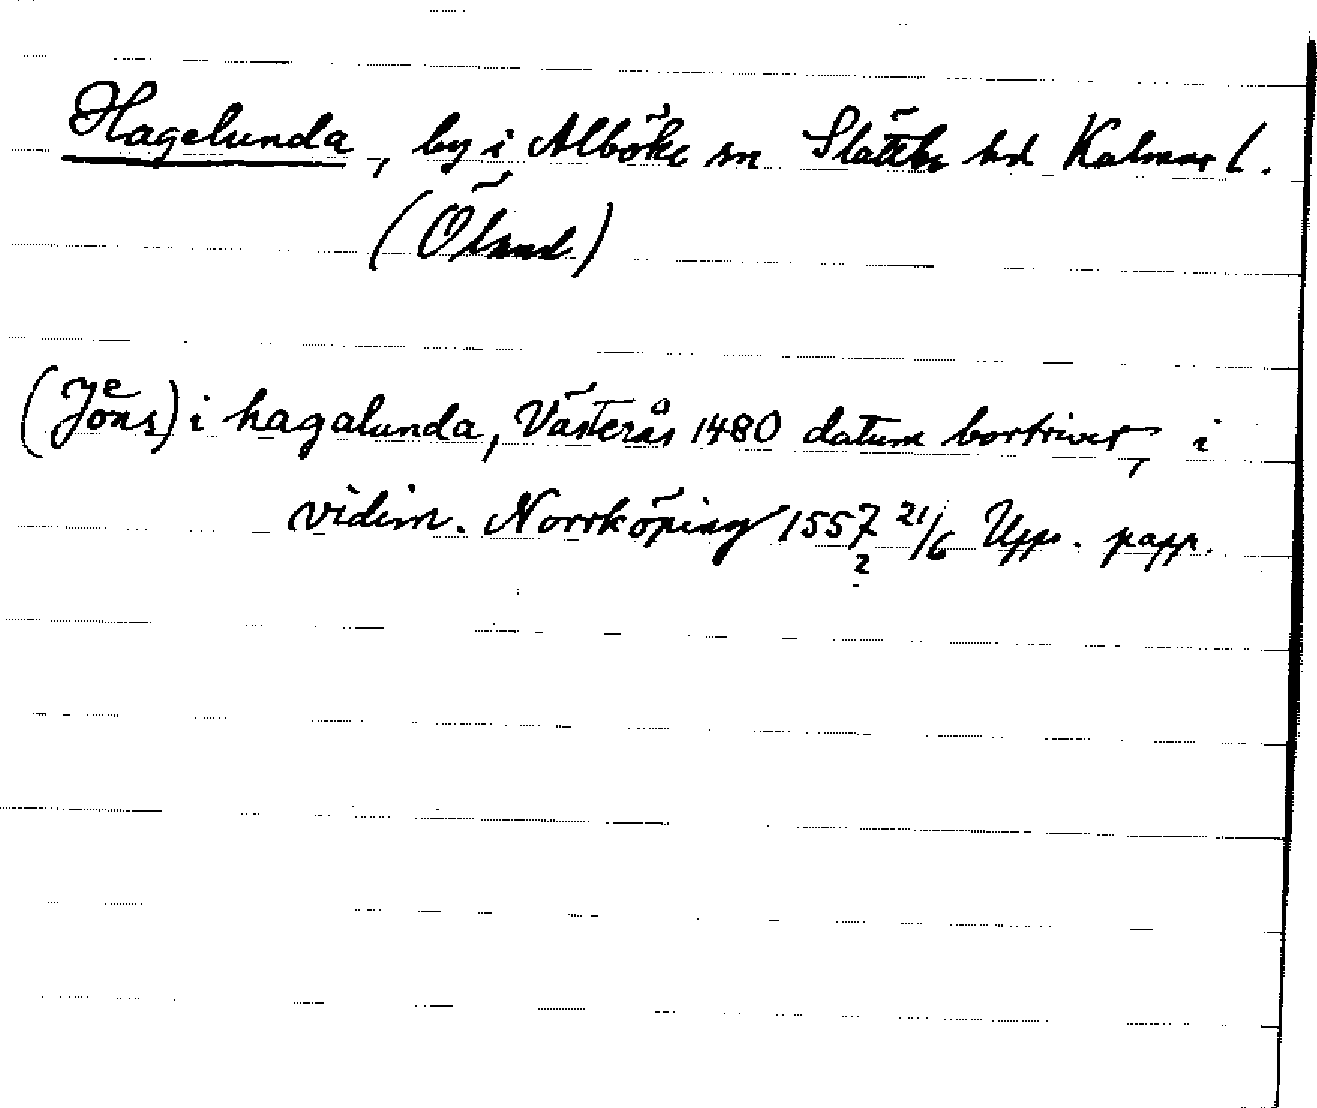 Hagelunda, by i Alböke sn Slättbo hd Kalmar l.
(Öland)
(Jöns) i hagalunda, Västerås 1480 datum bortrivet, i
vidim. Norrköping 1557 21/6 Upps. papp.
2